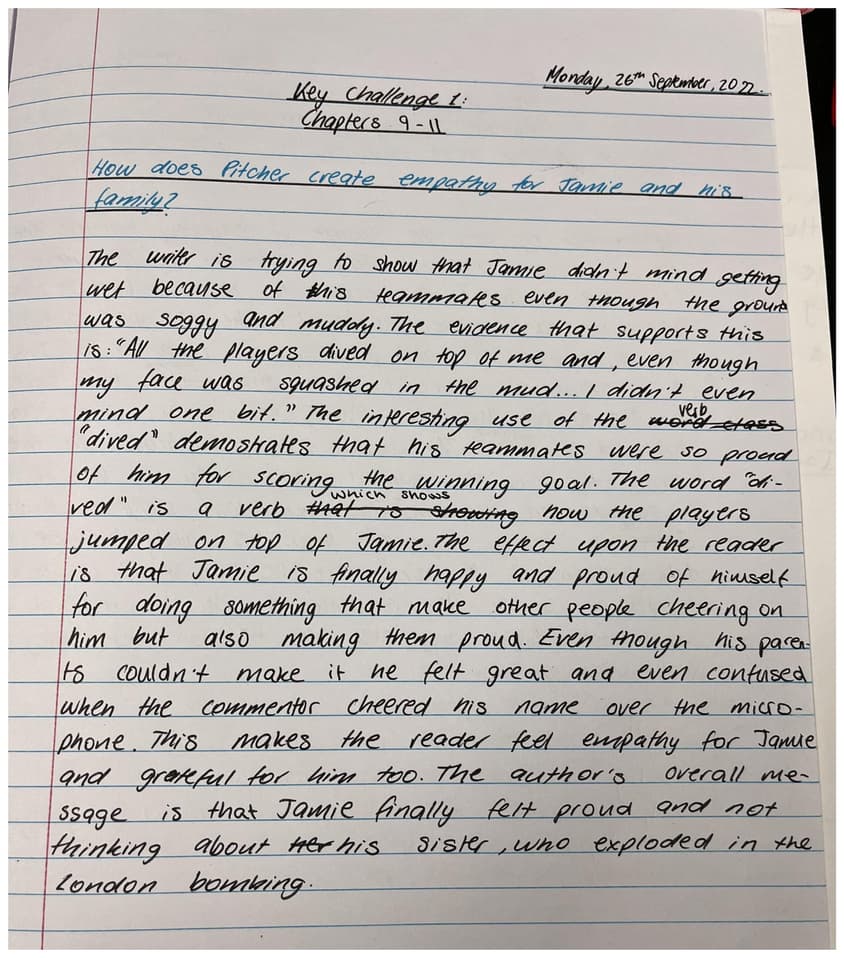 Monday, 26th September, 2022.
Key Challenge 1:
Chapters 9-11
How does Pitcher create empathy for Jamie and his
family?
The writer is trying to show that Jamie didn't mind getting
wet because of this teammates even though the ground
was soggy and muddy. The evidence that supports this
is: "All the players dived on top of me and, even though
my face was squashed in the mud... I didn't even
mind one bit." The interesting use of the word class verb
"dived" demostrates that his teammates were so proud
of him for scoring the winning goal. The word "di-
ved" is a verb that is showing which shows how the players
jumped on top of Jamie. The effect upon the reader
is that Jamie is finally happy and proud of himself
for doing something that make other people cheering on
him but also making them proud. Even though his paren-
ts couldn't make it he felt great and even confused
when the commentor cheered his name over the micro-
phone. This makes the reader feel empathy for Jamie
and grateful for him too. The author's overall me-
ssage is that Jamie finally felt proud and not
thinking about her his sister, who exploded in the
London bombing.